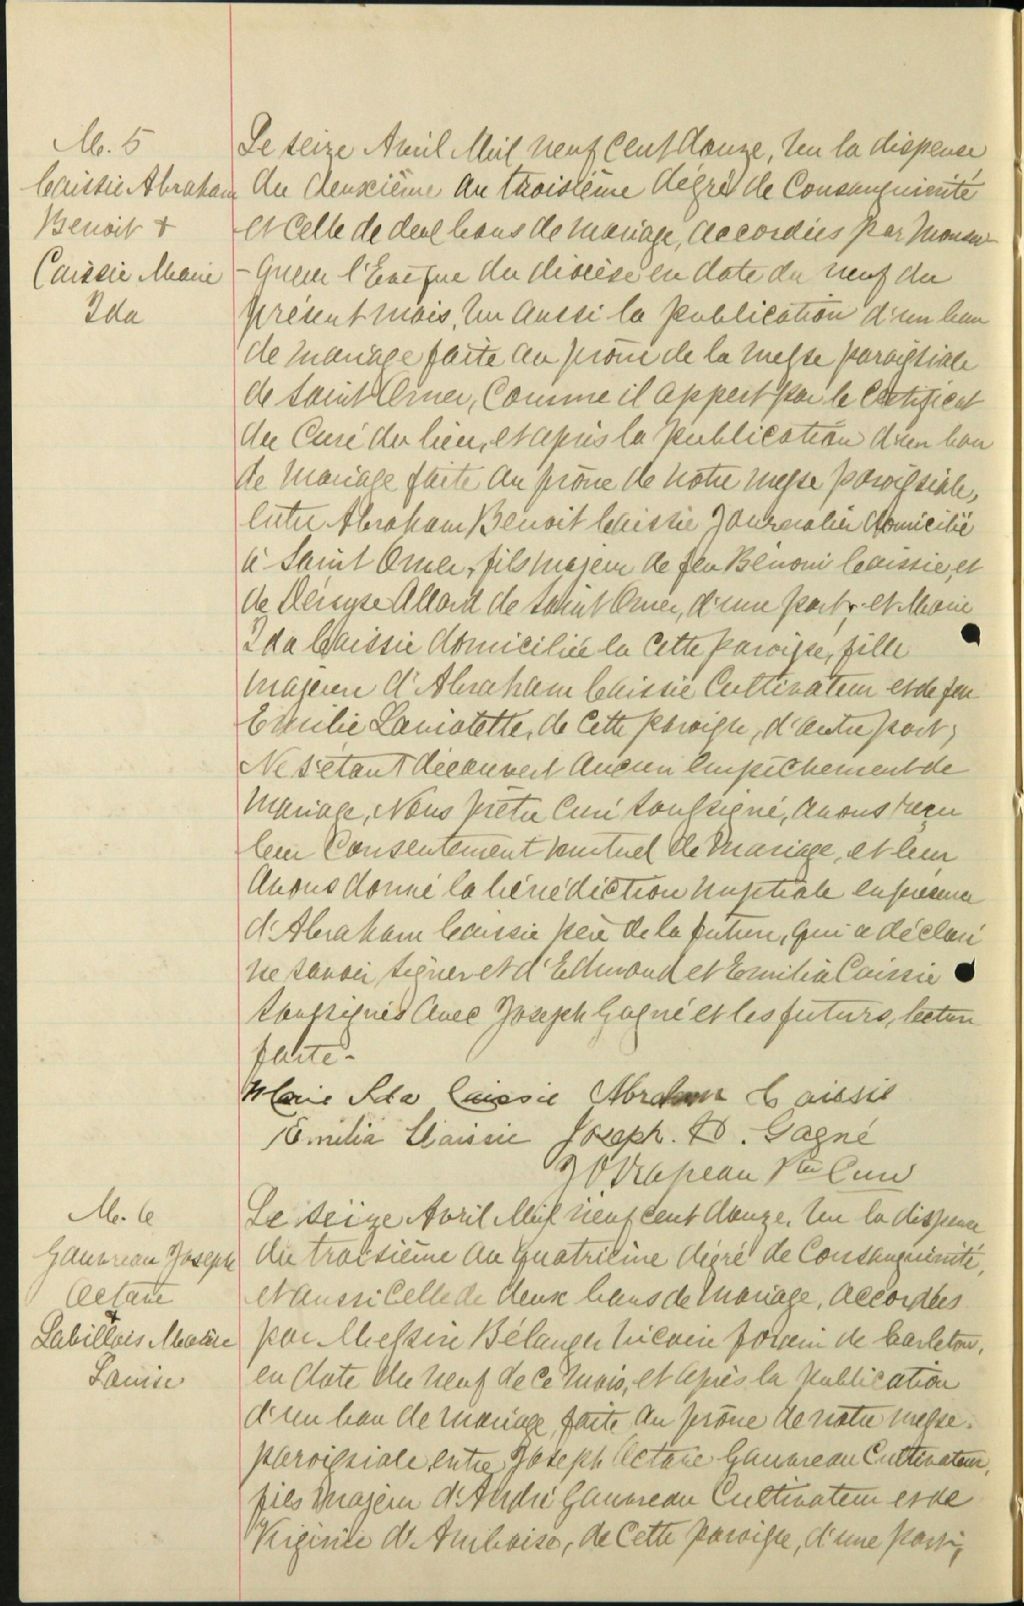 M. 5
Caissie Abraham
Benoit +
Caissie Marie
Ida
Le seize Avril Mil neuf cent douze, Vu la dispense
du deuxième au troisième dégré de Consanguinité
et celle de deux bans de mariage, accordées par Monsei-
-gneur l'Evêque du diocèse en date du neuf du
présent mois, Vu aussi la publication d'un ban
de mariage faite au prône de la messe paroissiale
de Saint Omer, Comme il appert par le Certificat
du Curé du lieu, et après la publication d'un ban
de mariage faite au prône de notre messe paroissiale,
entre Abraham Benoit Caissie Journalier domicilié
à Saint Omer, fils majeur de feu Bénoni Caissie, et
de Allard de Saint Omer, d'une part; et Marie
Ida Caissie domiciliée en cette paroisse, fille
majeure d'Abraham Caissie Cultivateur et de feu
Emilie de cette paroisse, d'autre part;
Ne s'étant découvert aucun empêchement de
mariage, Nous prêtre Curé soussigné, avons reçu
leur Consentement mutuel de mariage, et leur
avons donné la bénédiction nuptiale en présence
d'Abraham Caissie père de la future, qui a déclaré
ne savoir signer et d'Edmond et Emilia Caissie
soussignés avec Joseph Gagné et les futurs, lecture
faite-
Marie Ida Caissie Abraham Caissie
Emilia Caissie Joseph. D. Gagné
J O Drapeau Ptre Curé
M. 6
Gauvreau Joseph
Octave
+
Labillois Marie
Louise
Le seize Avril Mil neuf cent douze, Vu la dispense
du troisième au quatrième dégré de Consanguinité,
et aussi celle de deux bans de mariage, accordées
par Messire Bélanger Vicaire forain de Carleton,
en date du neuf de ce mois, et après la publication
d'un ban de mariage, faite au prône de notre messe
paroissiale, entre Joseph Octave Gauvreau Cultivateur,
fils majeur d'André Gauvreau Cultivateur et de
Virginie d'Amboise, de cette paroisse, d'une part;